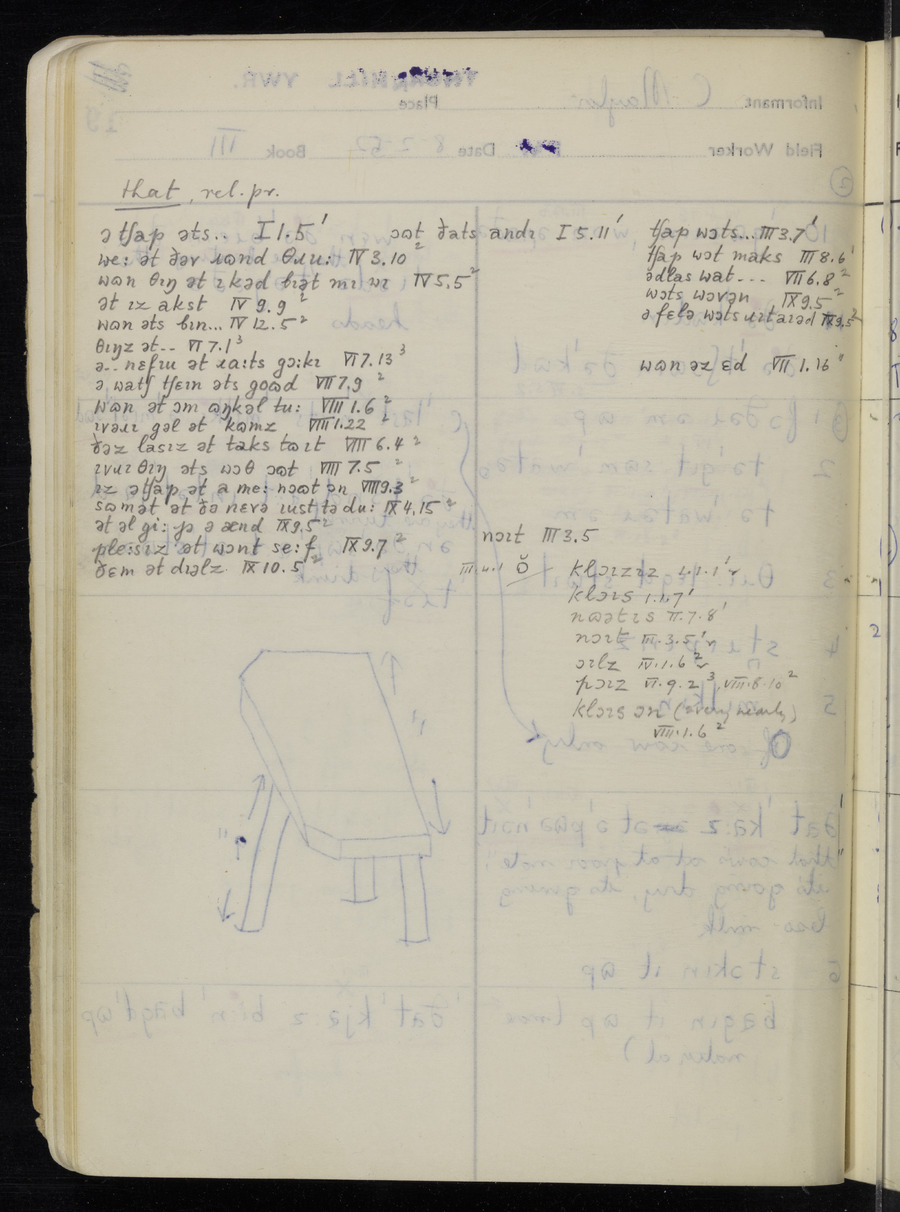 that, rel. pr.
ə tʃap əts.. I 1.5¹
we: ət ðər ɹɷnd θɹu: IV 3.10²
wɷn θɪŋ ət ɪ kəd bɪət mɪ wɪ IV 5.5²
ət ɪz akst IV 9.9²
wɷn əts bɪn... IV 12.5²
θɪŋz ət.. VI 7.1³
ə.. nɛfɪu ət ɹa:ts gɔ:kɪ VI 7.13³
ə watʃ tʃɛɪn əts gɷd VII 7.9²
wɷn ət ɔm ɷŋkəl tu: VIII 1.6²
ɪvəɹɪ gəl ət kɷmz VIII 1.22²
ðəz lasɪz ət taks tɷɪt VIII 6.4²
ɪvɹɪ θɪŋ əts wɔθ ɔɷt VIII 7.5²
ɪz ətʃap ət a me: nɔɷt ən VIII 9.3²
sɷmət ət ðə nɛvə ɪust tə du: IX 4.15²
ət əl gi: jə ə ænd IX 9.5²
ple:sɪz ət wɔnt se:f IX 9.7²
ðɛm ət dɪəlz IX 10.5²
ɔɷt ðats andɪ I 5.11¹
tʃap wɔts... III 3.7¹
tʃap wɔt maks III 8.6¹
ədlas wat... VII 6.8²
wɔts wɔvən IX 9.5²
ə fɛlə wɔts ɹɪtaɪəd IX 9.5²
wɷn əz ɛd VII 1.16
nɔɪt III 3.5
III.4.1 ŏ klɔɪzɪz 4.1.1¹
klɔɪs 1.1.7¹
nɷətɪs II.7.8¹
nɔɪt III.3.5¹
ɔɪlz IV.1.6²
pɔɪz VI.9.2³, VIII.8.10²
klɔɪs ɔn (very nearly)
VIII.1.6²